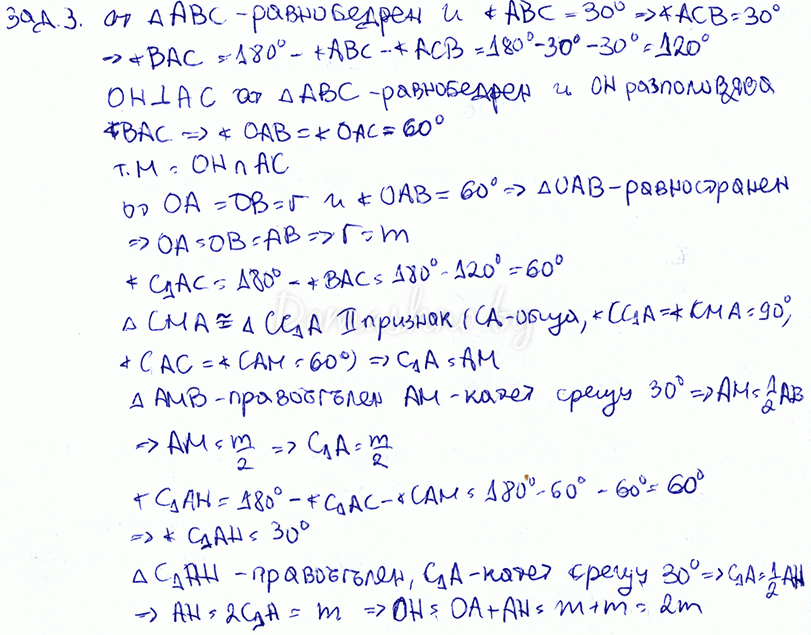 Зад.3. от △ABC - равнобедрен и ∢ABC = 30° => ∢ACB = 30°
=> ∢BAC = 180° - ∢ABC - ∢ACB = 180° - 30° - 30° = 120°
OH⊥AC от △ABC - равнобедрен и OH разполовява
∢BAC => ∢OAB = ∢OAC = 60°
т.M = OH ∩ AC
от OA = OB = r и ∢OAB = 60° => △OAB - равностранен
=> OA = OB = AB => r = m
∢C₁AC = 180° - ∢BAC = 180° - 120° = 60°
△CMA ≅ △CC₁A II признак (CA - обща, ∢CC₁A = ∢CMA = 90°,
∢CAC = ∢CAM = 60°) => C₁A = AM
△AMB - правоъгълен AM - катет срещу 30° => AM = 1/2 AB
=> AM = m/2 => C₁A = m/2
∢C₁AH = 180° - ∢C₁AC - ∢CAM = 180° - 60° - 60° = 60°
=> ∢C₁AH = 30°
△C₁AH - правоъгълен, C₁A - катет срещу 30° => C₁A = 1/2 AH
=> AH = 2C₁A = m => OH = OA + AH = m + m = 2m